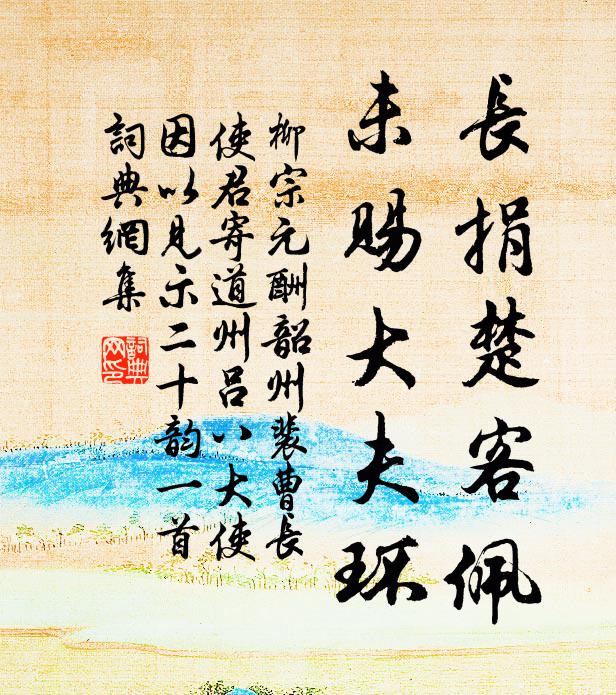 長捐楚客佩
未賜大夫环
柳宗元酬韶州裴曹長
使君寄道州呂八大使
因以見示二十韵一首
詞典網集
詞典
网印